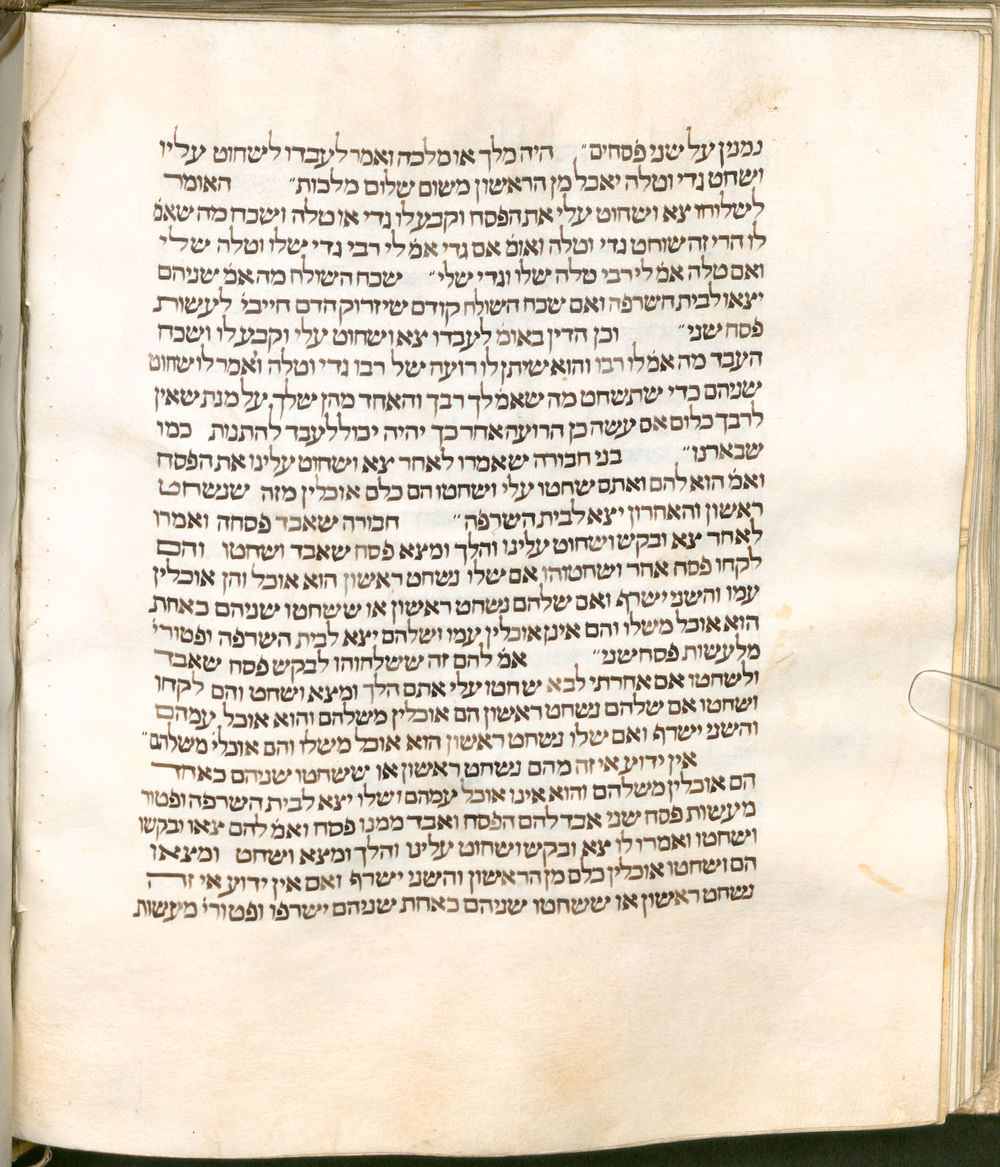 נמנין על שני פסחים״ היה מלך או מלכה ואמר לעבדו לישחוט עליו
וישחט גדי וטלה יאכל מן הראשון משום שלום מלכות״ האומר
לשלוחו צא ושחוט עלי את הפסח וקבע לו גדי או טלה ושכח מה שאמ׳
לו הרי זה שוחט גדי וטלה ואומ׳ אם גדי אמ׳ לי רבי גדי שלו וטלה שלי
ואם טלה אמ׳ לי רבי טלה שלו וגדי שלי״ שכח השולח מה אמ׳ שניהם
יצאו לבית השרפה ואם שכח השולח קודם שיזרוק הדם חייבי׳ לעשות
פסח שני״ וכן הדין באומ׳ לעבדו צא ושחוט עלי וקבע לו ושכח
העבד מה אמ׳ לו רבו והוא שיתן לו רועה של רבו גדי וטלה ואמר לו שחוט
שניהם כדי שתשחט מה שאמ׳ לך רבך והאחד מהן שלך על מנת שאין
לרבך כלום אם עשה כן הרועה אחר כך יהיה יכול לעבד להתנות כמו
שבארנו״ בני חבורה שאמרו לאחר צא ושחוט עלינו את הפסח
ואמ׳ הוא להם ואתם שחטו עלי ושחטו הם כלם אוכלין מזה שנשחט
ראשון והאחרון יצא לבית השרפה״ חבורה שאבד פסחה ואמרו
לאחר צא ובקש ושחוט עלינו והלך ומצא פסח שאבד ושחטו והם
לקחו פסח אחר ושחטוהו אם שלו נשחט ראשון הוא אוכל והן אוכלין
עמו והשני ישרף ואם שלהם נשחט ראשון או ששחטו שניהם כאחת
הוא אוכל משלו והם אינן אוכלין עמו ושלהם יצא לבית השרפה ופטורי׳
מלעשות פסח שני״ אמ׳ להם זה ששלחוהו לבקש פסח שאבד
ולשחטו אם אחרתי לבא שחטו עלי אתם הלך ומצא ושחט והם לקחו
ושחטו אם שלהם נשחט ראשון הם אוכלין משלהם והוא אוכל עמהם
והשני ישרף ואם שלו נשחט ראשון הוא אוכל משלו והם אוכלי משלהם״
אין ידוע אי זה מהם נשחט ראשון או ששחטו שניהם כאחד
הם אוכלין משלהם והוא אינו אוכל עמהם ושלו יצא לבית השרפה ופטור
מעשות פסח שני אבד להם הפסח ואבד ממנו פסח ואמ׳ להם צאו ובקשו
ושחטו ואמרו לו צא ובקש ושחוט עלינו והלך ומצא ושחט ומצאו
הם ושחטו אוכלין כלם מן הראשון והשני ישרף ואם אין ידוע אי זה
נשחט ראשון או ששחטו שניהם כאחת שניהם ישרפו ופטורי׳ מעשות